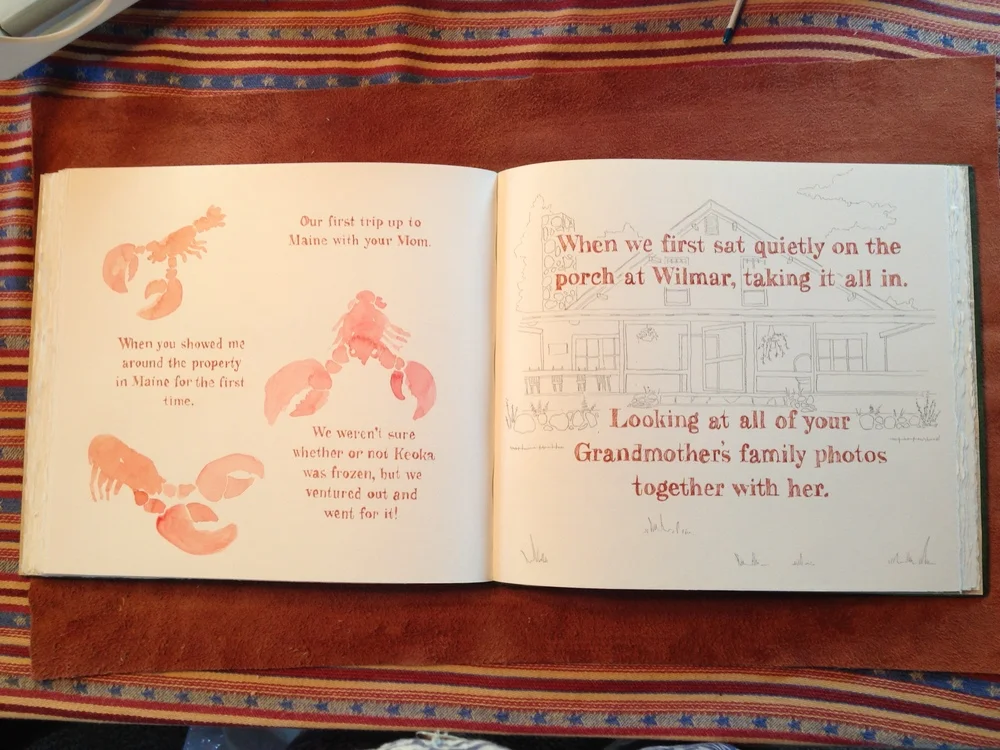 Our first trip up to
Maine with your Mom.
When you showed me
around the property
in Maine for the first
time.
We weren't sure
whether or not Keoka
was frozen, but we
ventured out and
went for it!
When we first sat quietly on the
porch at Wilmar, taking it all in.
Looking at all of your
Grandmother's family photos
together with her.